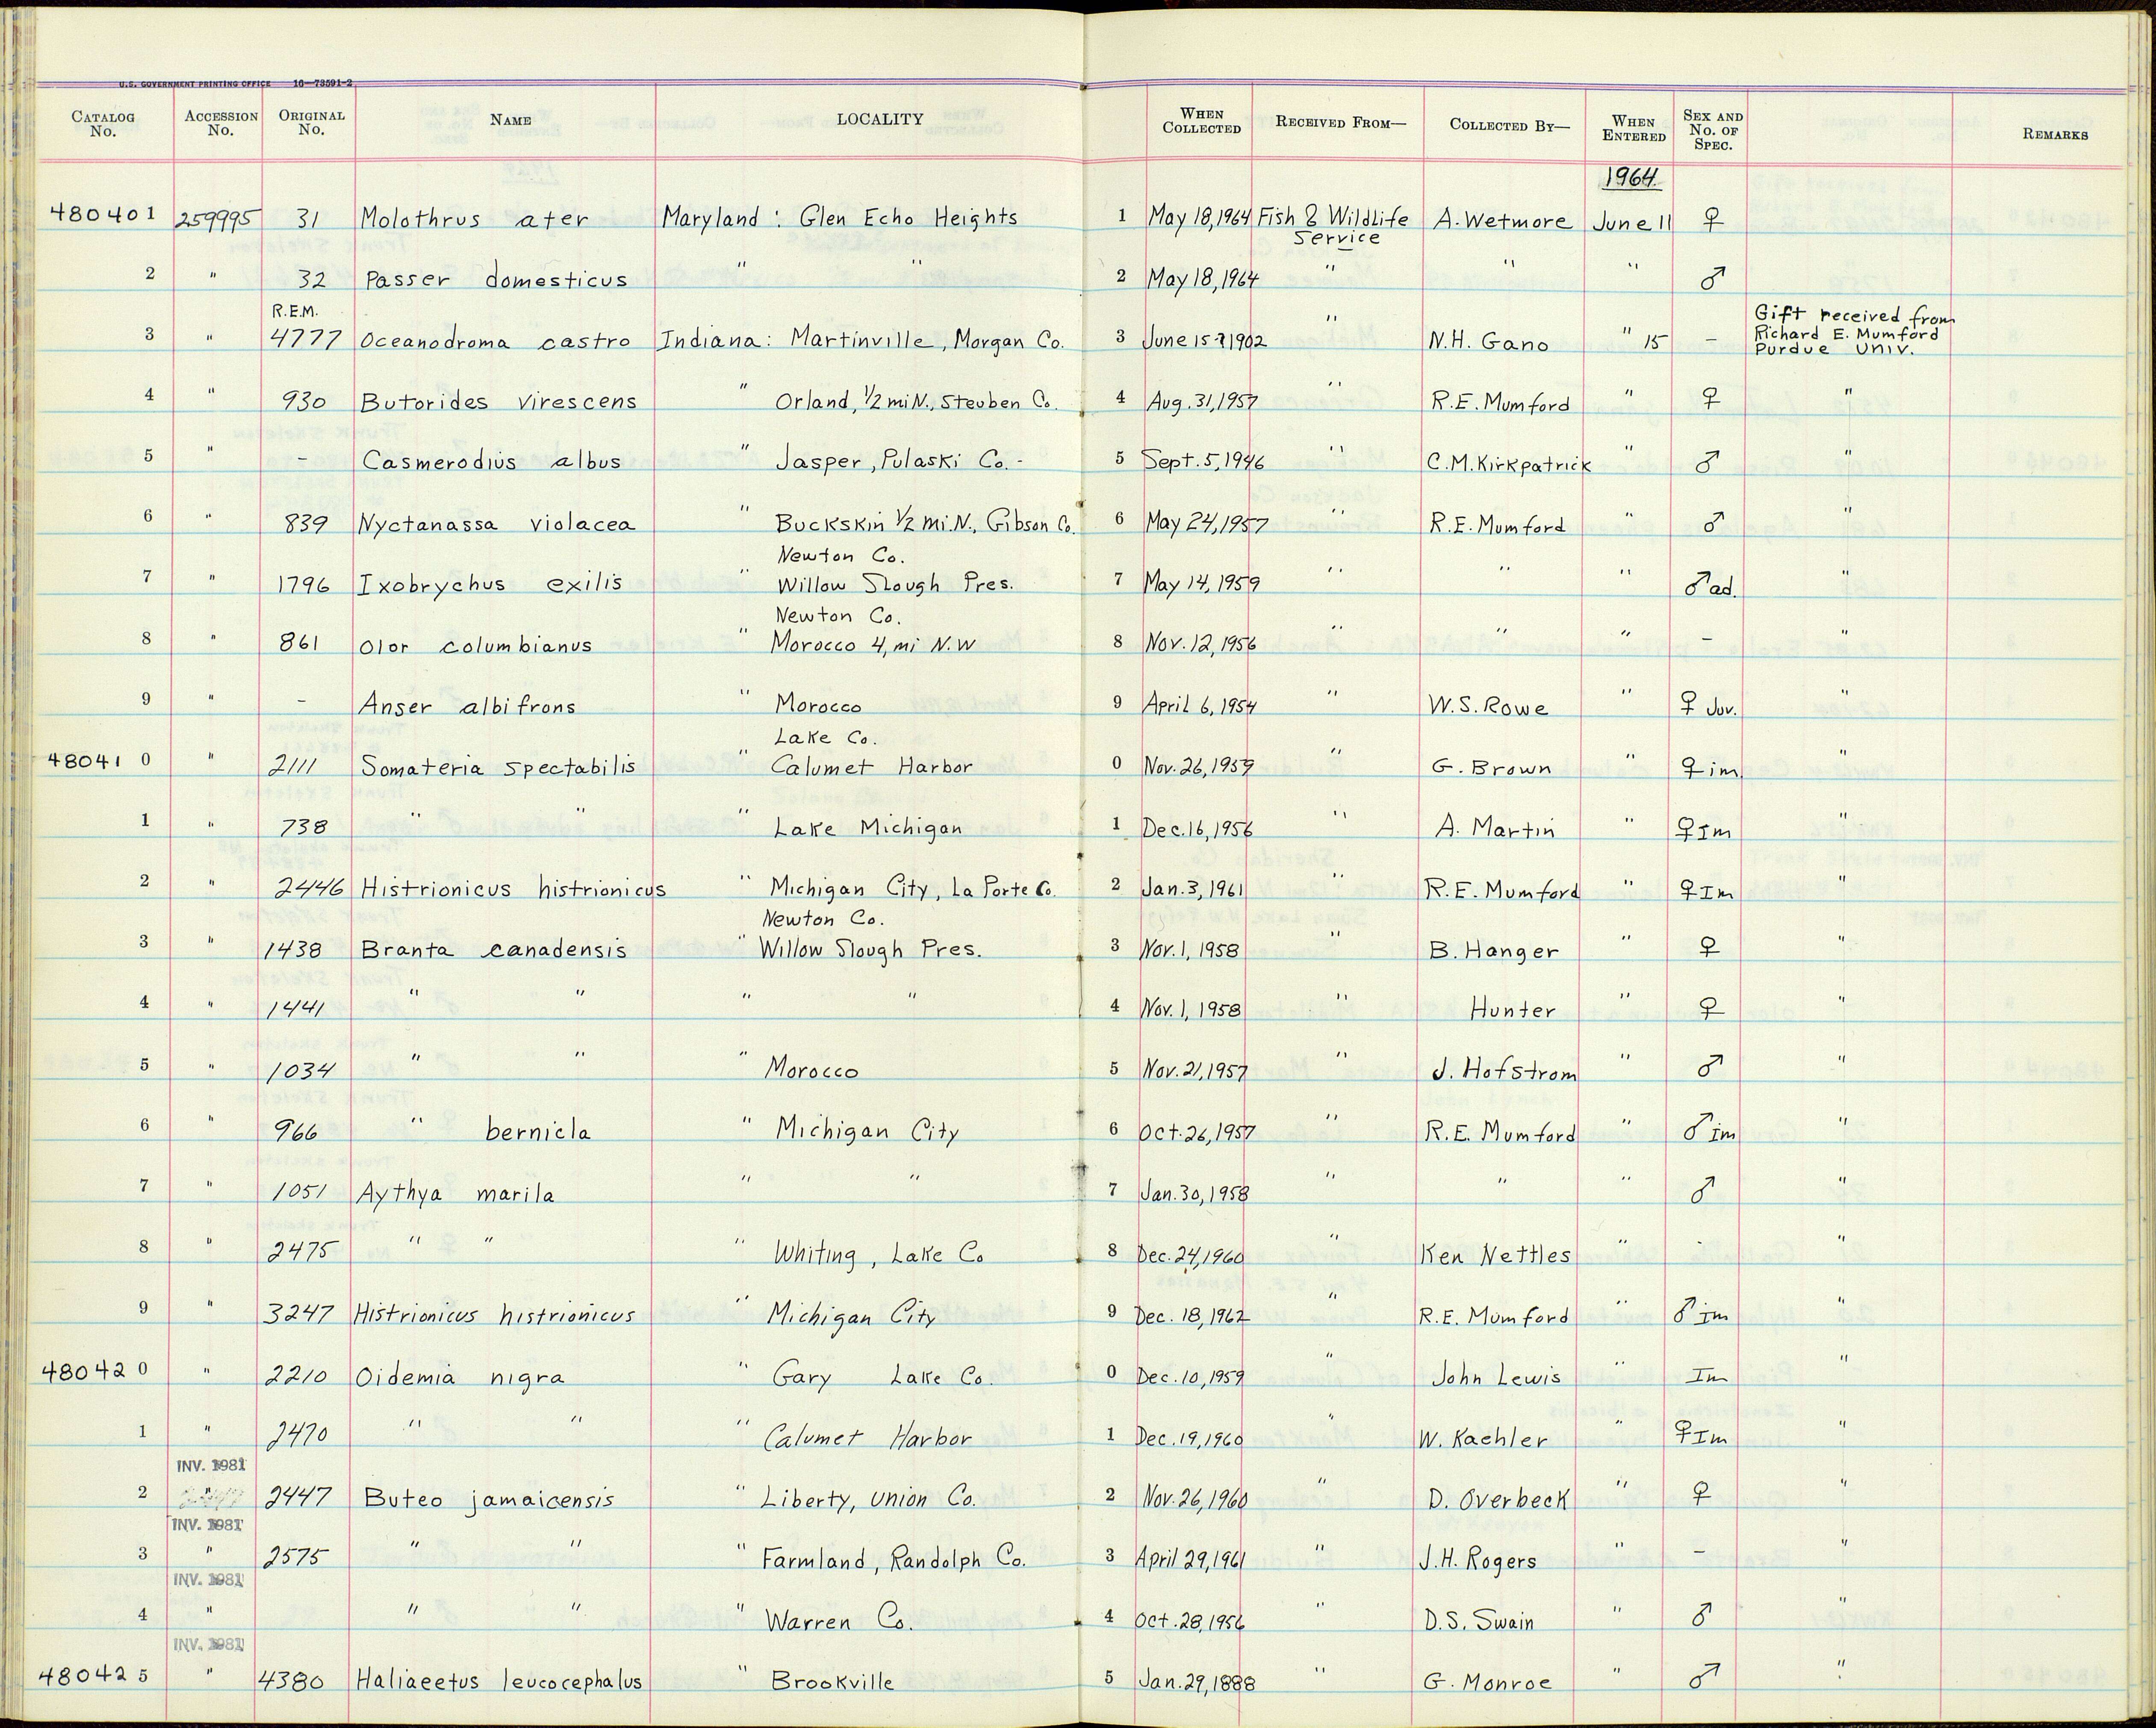 U.S. GOVERNMENT PRINTING OFFICE 16—73591-2
CATALOG No. ACCESSION No. ORIGINAL No. NAME LOCALITY WHEN COLLECTED RECEIVED FROM— COLLECTED BY— WHEN ENTERED SEX AND No. OF SPEC. REMARKS
1964
480401 259995 31 Molothrus ater Maryland : Glen Echo Heights 1 May 18, 1964 Fish & Wildlife Service A. Wetmore June 11 ♀
2 " 32 Passer domesticus " " 2 May 18, 1964 " " " ♂
3 " R.E.M. 4777 Oceanodroma castro Indiana: Martinville, Morgan Co. 3 June 15?1902 " N.H. Gano " 15 – Gift received from Richard E. Mumford Purdue Univ.
4 " 930 Butorides virescens " Orland, 1/2 mi N., Steuben Co. 4 Aug. 31, 1957 " R.E. Mumford " ♀ "
5 " – Casmerodius albus " Jasper, Pulaski Co. - 5 Sept. 5, 1946 " C.M. Kirkpatrick " ♂ "
6 " 839 Nyctanassa violacea " Buckskin 1/2 mi. N., Gibson Co. 6 May 24, 1957 " R.E. Mumford " ♂ "
7 " 1796 Ixobrychus exilis " Newton Co. Willow Slough Pres. 7 May 14, 1959 " " " ♂ ad. "
8 " 861 Olor columbianus " Newton Co. Morocco 4, mi N.W 8 Nov. 12, 1956 " " " – "
9 " – Anser albifrons " Morocco 9 April 6, 1954 " W.S. Rowe " ♀ Juv. "
480410 " 2111 Somateria spectabilis " Lake Co. Calumet Harbor 0 Nov. 26, 1959 " G. Brown " ♀ im "
1 " 738 " " " Lake Michigan 1 Dec. 16, 1956 " A. Martin " ♀ Im "
2 " 2446 Histrionicus histrionicus " Michigan City, La Porte Co. 2 Jan. 3, 1961 " R.E. Mumford " ♀ Im "
3 " 1438 Branta canadensis " Newton Co. Willow Slough Pres. 3 Nov. 1, 1958 " B. Hanger " ♀ "
4 " 1441 " " " " 4 Nov. 1, 1958 " Hunter " ♀ "
5 " 1034 " " " Morocco 5 Nov. 21, 1957 " J. Hofstrom " ♂ "
6 " 966 " bernicla " Michigan City 6 Oct. 26, 1957 " R.E. Mumford " ♂ im "
7 " 1051 Aythya marila " " 7 Jan. 30, 1958 " " " ♂ "
8 " 2475 " " " Whiting, Lake Co 8 Dec. 24, 1960 " Ken Nettles " - "
9 " 3247 Histrionicus histrionicus " Michigan City 9 Dec. 18, 1962 " R.E. Mumford " ♂ im "
480420 " 2210 Oidemia nigra " Gary Lake Co. 0 Dec. 10, 1959 " John Lewis " Im "
1 " 2470 " " " Calumet Harbor 1 Dec. 19, 1960 " W. Kaehler " ♀ Im "
INV. 1981
2 " 2447 Buteo jamaicensis " Liberty, Union Co. 2 Nov. 26, 1960 " D. Overbeck " ♀ "
INV. 1981
3 " 2575 " " " Farmland, Randolph Co. 3 April 29, 1961 " J.H. Rogers " – "
INV. 1981
4 " " " " Warren Co. 4 Oct. 28, 1956 " D.S. Swain " ♂ "
INV. 1981
480425 " 4380 Haliaeetus leucocephalus " Brookville 5 Jan. 29, 1888 " G. Monroe " ♂ "